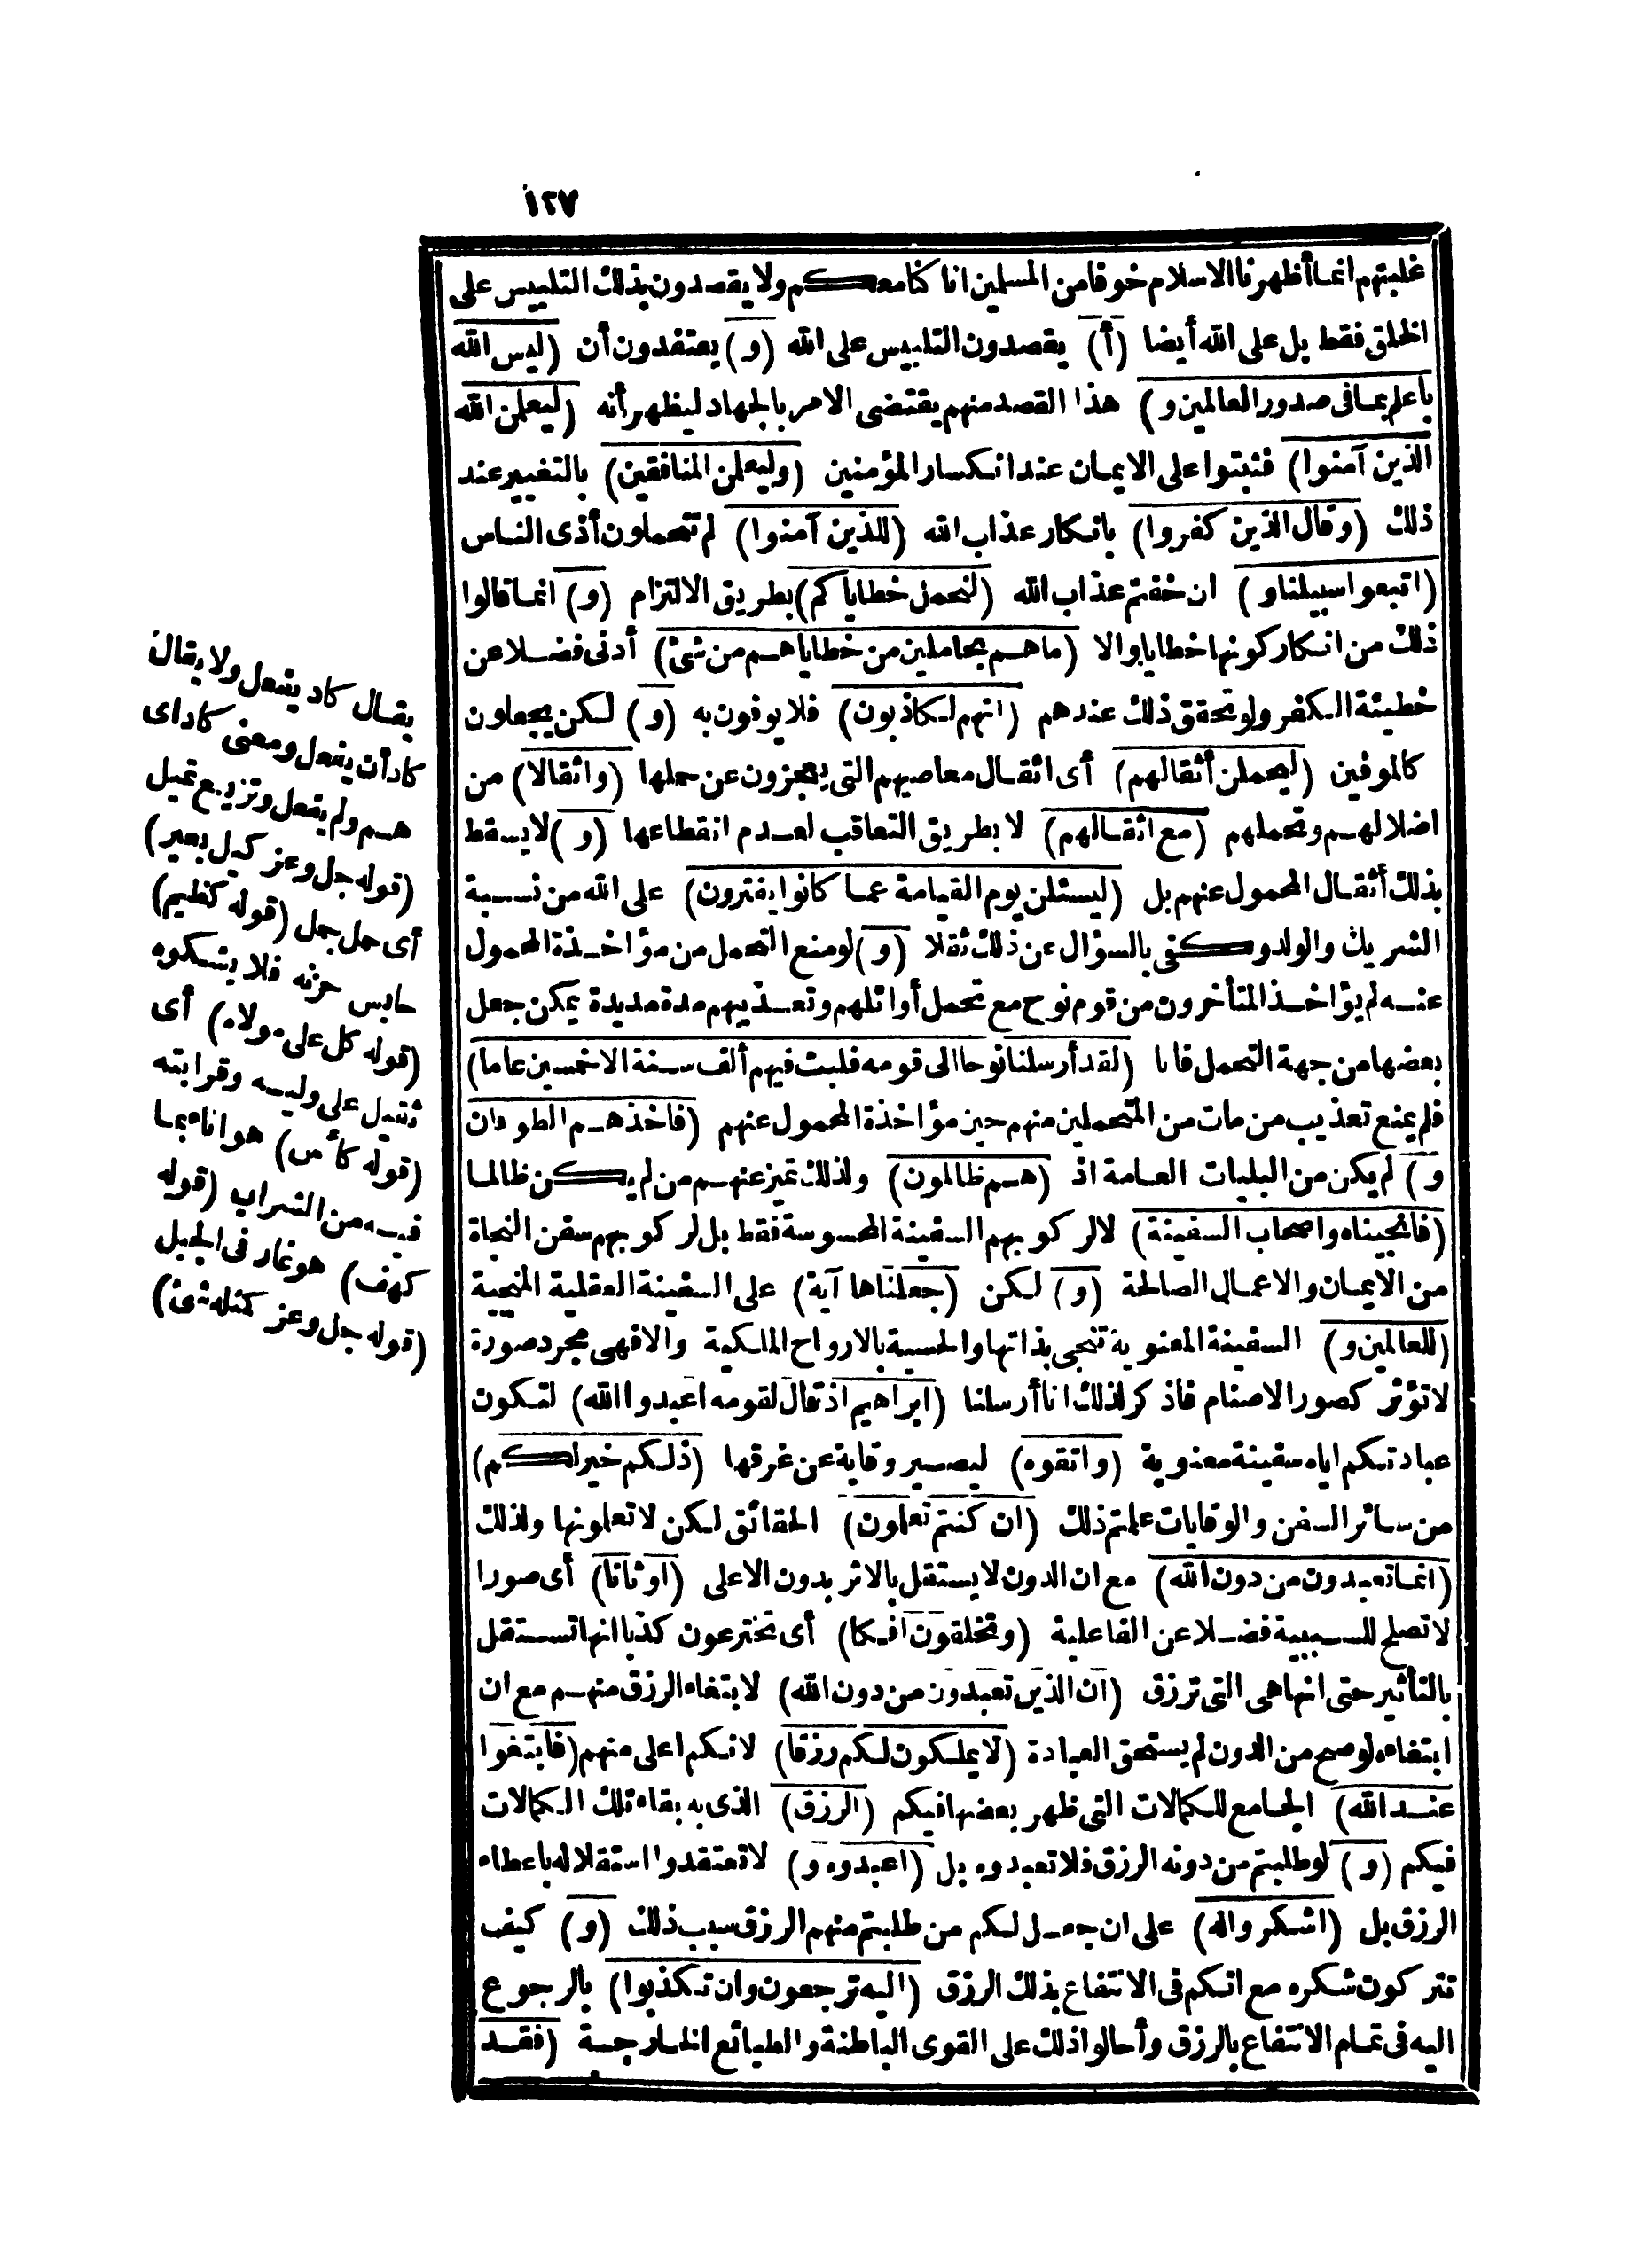 ١٢٧
غلبتهم انما أظهرنا الاسلام خوفا من المسلمين انا كنا معكم ولا يقصدون بذلك التلبيس على
الخلق فقط بل على الله أيضا (أ) يقصدون التلبيس على الله (و) يعتقدون أن (ليس الله
بأعلم بما فى صدور العالمين و) هذا القصد منهم يقتضى الامر بالجهاد ليظهر أنه (ليعلمن الله
الذين آمنوا) فثبتوا على الايمان عند انكسار المؤمنين (وليعلمن المنافقين) بالتغيير عند
ذلك (وقال الذين كفروا) بانكار عذاب الله (للذين آمنوا) لم تحملون أذى الناس
(اتبعوا سبيلنا و) ان خفتم عذاب الله (لنحمل خطاياكم) بطريق الالتزام (و) انما قالوا
ذلك من انكار كونها خطايا والا (ماهم بحاملين من خطاياهم من شئ) أدنى فضلا عن
خطيئة الكفر ولو تحقق ذلك عندهم (انهم لكاذبون) فلا يوفون به (و) لكن يجعلون
كالموفين (ليحملن أثقالهم) أى اثقال معاصيهم التى يعجزون عن حملها (واثقالا) من
اضلالهم وتحملهم (مع اثقالهم) لا بطريق التعاقب لعدم انقطاعها (و) لا يسقط
بذلك أثقال المحمول عنهم بل (ليسئلن يوم القيامة عما كانوا يفترون) على الله من نسبة
الشريك والولد وكفى بالسؤال عن ذلك ثقلا (و) لو منع التحمل من مؤاخذة المحمول
عنه لم يؤاخذ المتأخرون من قوم نوح مع تحمل أوائلهم وتعذيبهم مدة مديدة يمكن جعل
بعضها من جهة التحمل فانا (لقد أرسلنا نوحا الى قومه فلبث فيهم ألف سنة الا خمسين عاما)
فلم يمنع تعذيب من مات من المتحملين منهم حين مؤاخذة المحمول عنهم (فاخذهم الطوفان
و) لم يكن من البليات العامة اذ (هم ظالمون) ولذلك تميز عنهم من لم يكن ظالما
(فانجيناه واصحاب السفينة) لا لركوبهم السفينة المحسوسة فقط بل لركوبهم سفن النجاة
من الايمان والاعمال الصالحة (و) لكن (جعلناها آية) على السفينة العقلية المنجية
(للعالمين و) السفينة المعنوية تنجى بذاتها والحسية بالارواح الملكية والافهى مجرد صورة
لا تؤثر كصور الاصنام فاذكر لذلك انا أرسلنا (ابراهيم اذ قال لقومه اعبدوا الله) لتكون
عبادتكم اياه سفينة معنوية (واتقوه) ليصير وقاية عن غرقها (ذلكم خير لكم)
من سائر السفن والوقايات علمتم ذلك (ان كنتم تعلمون) الحقائق لكن لا تعلمونها ولذلك
(انما تعبدون من دون الله) مع ان الدون لا يستقل بالاثر بدون الاعلى (اوثانا) أى صورا
لا تصلح للسببية فضلا عن الفاعلية (وتخلقون افكا) أى تخترعون كذبا انها تستقل
بالتأثير حتى انها هى التى ترزق (ان الذين تعبدون من دون الله) لابتغاء الرزق منهم مع ان
ابتغاءه لو صح من الدون لم يستحق العبادة (لا يملكون لكم رزقا) لانكم اعلى منهم (فابتغوا
عند الله) الجامع للكمالات التى ظهر بعضها فيكم (الرزق) الذى به بقاء تلك الكمالات
فيكم (و) لو طلبتم من دونه الرزق فلا تعبدوه بل (اعبدوه و) لا تعتقدوا استقلاله باعطاء
الرزق بل (اشكروا له) على ان جعل لكم من طلبتم منهم الرزق سبب ذلك (و) كيف
تتركون شكره مع انكم فى الانتفاع بذلك الرزق (اليه ترجعون وان تكذبوا) بالرجوع
اليه فى تمام الانتفاع بالرزق وأحالوا ذلك على القوى الباطنة والطبائع الخارجية (فقد
يقال كاد يفعل ولا يقال
كاد أن يفعل ومعنى كاد اى
هم ولم يفعل وتزيغ تميل
(قوله جل وعز كيل بعير)
أى حمل جمل (قوله كظيم)
حابس حزنه فلا يشكوه
(قوله كل على مولاه) أى
ثقيل على وليه وقرابته
(قوله كأس) هو اناء بما
فيه من الشراب (قوله
كهف) هو غار فى الجبل
(قوله جل وعز كمثله شئ)